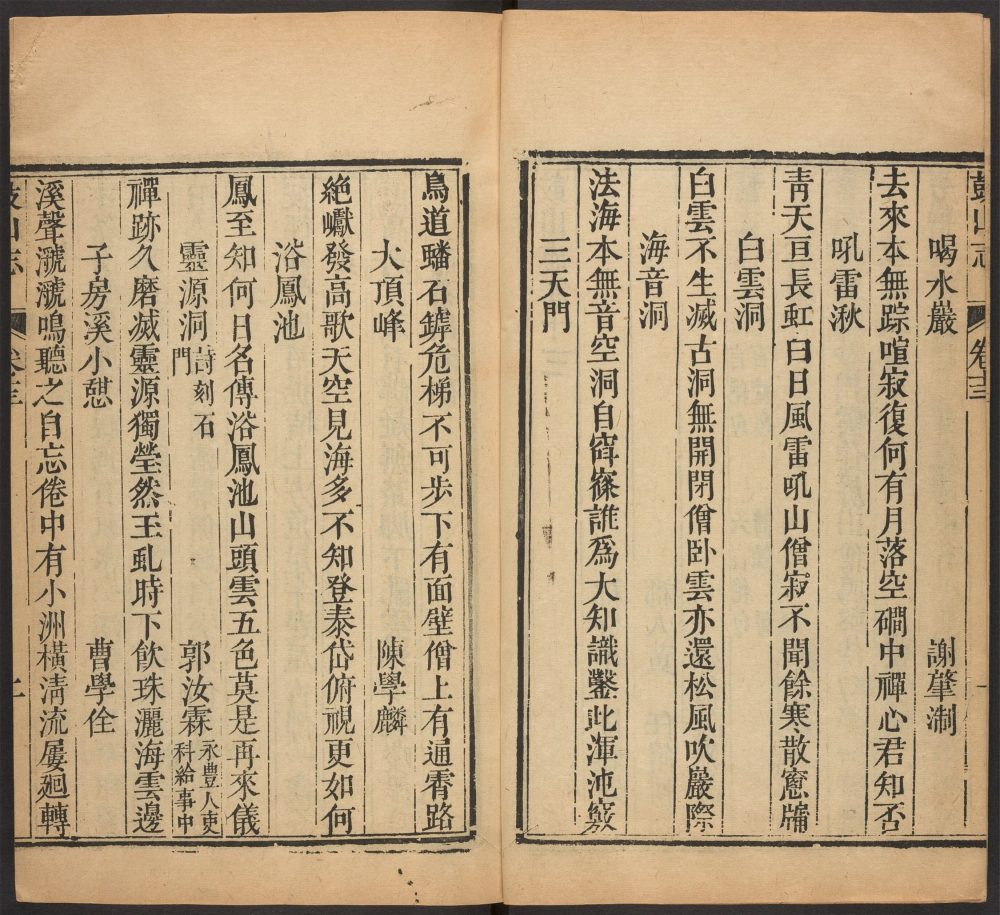 鼓山志 卷十三
喝水巖 謝肇淛
去來本無踪喧寂復何有月落空磵中禪心君知否
吼雷湫
靑天亘長虹白日風雷吼山僧寂不聞餘寒散窻牖
白雲洞
白雲不生滅古洞無開閉僧卧雲亦還松風吹巖際
海音洞
法海本無音空洞自窅窱誰爲大知識鑿此渾沌竅
三天門
鳥道蟠石罅危梯不可步下有面壁僧上有通霄路
大頂峰 陳學麟
絶巘發高歌天空見海多不知登泰岱俯視更如何
浴鳳池
鳳至知何日名傳浴鳳池山頭雲五色莫是再來儀
靈源洞 詩刻石門 郭汝霖 永豐人吏科給事中
禪跡久磨滅靈源獨瑩然玉虬時下飲珠灑海雲邊
子房溪小憇 曹學佺
溪聲㶁㶁鳴聽之自忘倦中有小洲橫淸流屢廻轉
鼓山志 卷十三 二